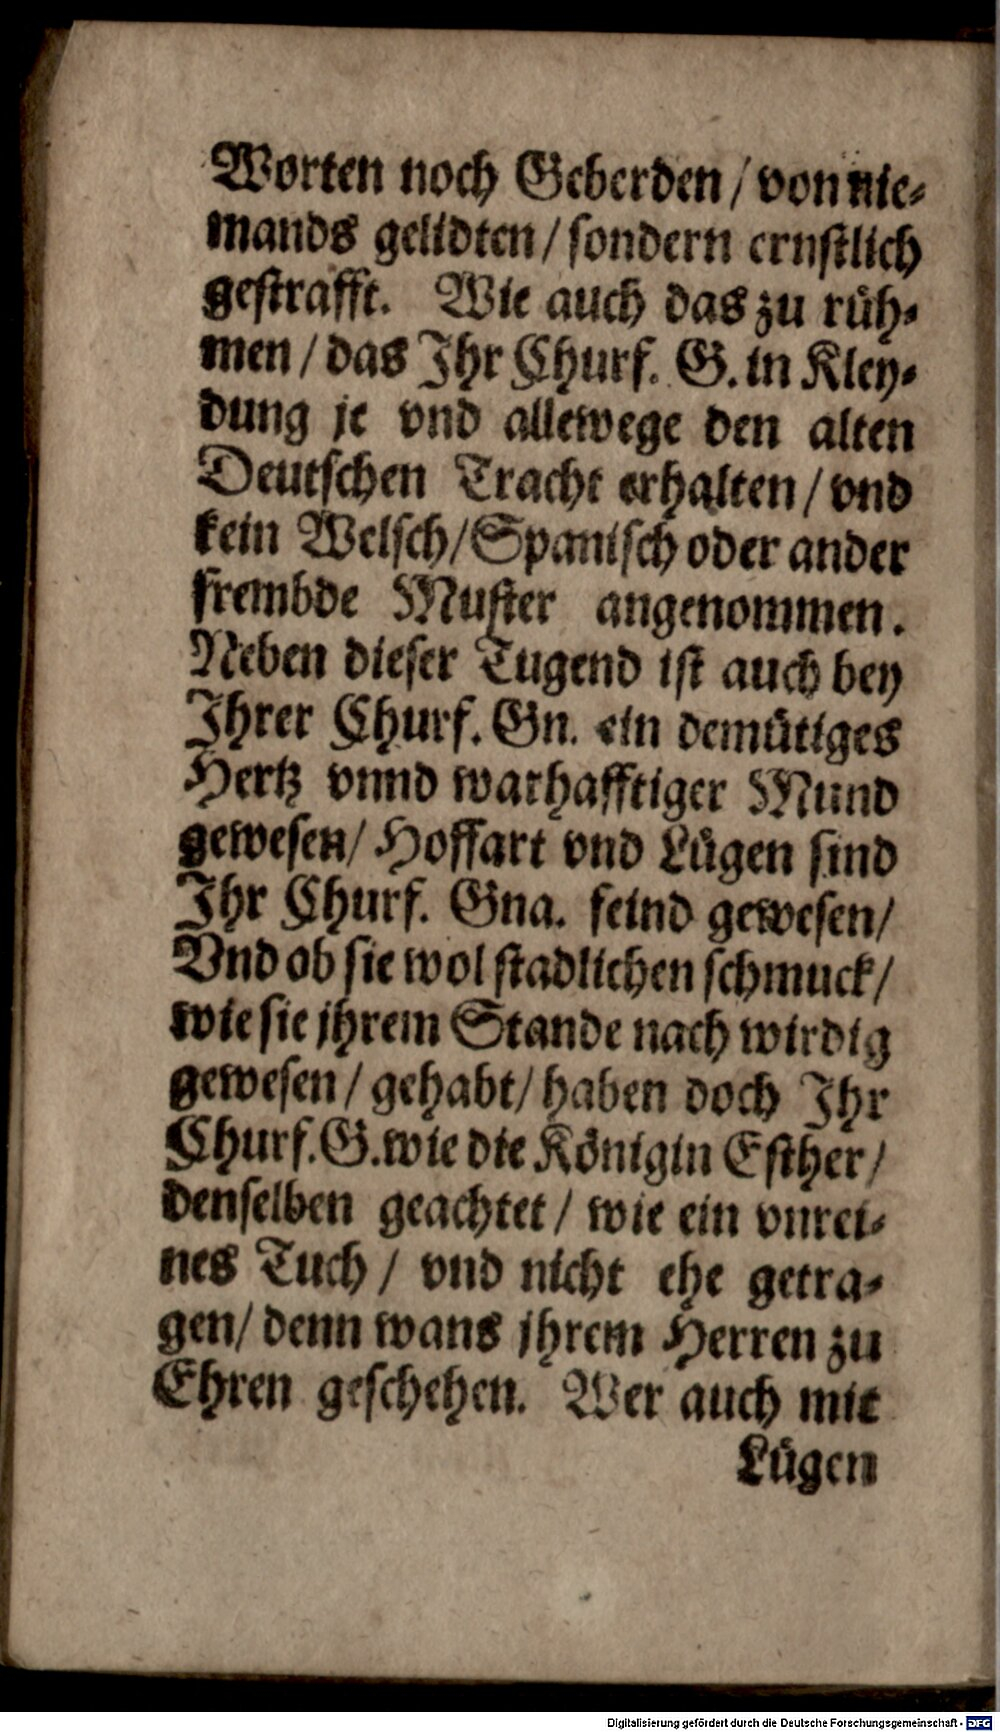 Worten noch Geberden / von nie-
mands gelidten / sondern ernstlich
gestrafft. Wie auch das zu rüh-
men / das Ihr Churf. G. in Kley-
dung je vnd allewege den alten
Deutschen Tracht erhalten / vnd
kein Welsch / Spanisch oder ander
frembde Muster angenommen.
Neben dieser Tugend ist auch bey
Ihrer Churf. Gn. ein demütiges
Hertz vnnd warhafftiger Mund
gewesen / Hoffart vnd Lügen sind
Ihr Churf. Gna. feind gewesen /
Vnd ob sie wol stadlichen schmuck /
wie sie jhrem Stande nach wirdig
gewesen / gehabt / haben doch Ihr
Churf. G. wie die Königin Esther /
denselben geachtet / wie ein vnrei-
nes Tuch / vnd nicht ehe getra-
gen / denn wans jhrem Herren zu
Ehren geschehen. Wer auch mit
Lügen
Digitalisierung gefördert durch die Deutsche Forschungsgemeinschaft - DFG